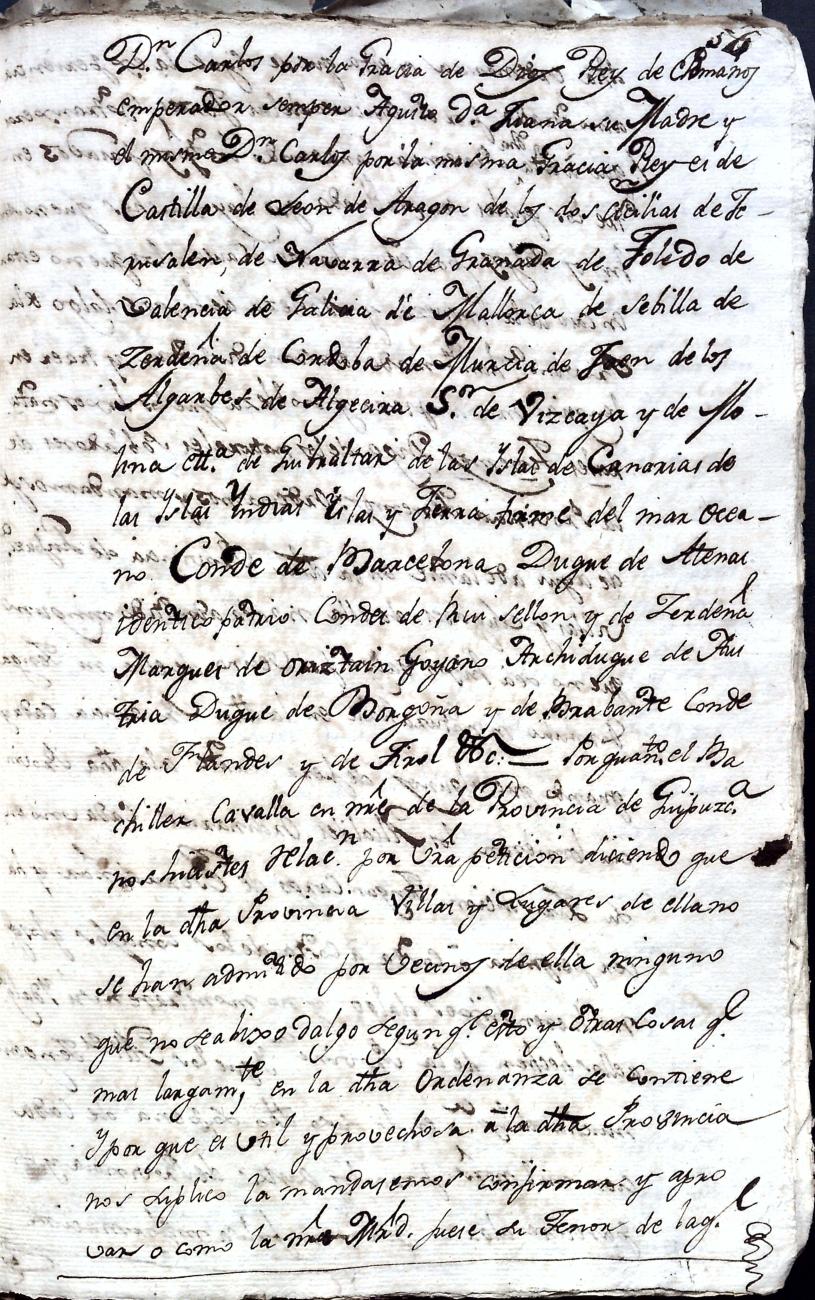 54
D.n Carlos por la Gracia de Dios Rey de Romanos
emperador semper Agusto D.a Juana su Madre y
el mismo D.n Carlos por la misma Gracia Reyes de
Castilla de Leon de Aragon de los dos Cecilias de Je-
rusalen, de Navarra de Granada de Toledo de
Valencia de Galicia de Mallorca de Sebilla de
Zerdeña de Cordoba de Murcia de Jaen de los
Algarbes de Algecira S.or de Vizcaya y de Mo-
lina ett.a de Guibraltar de las Yslas de Canarias de
las Yslas Yndias Yslas y Tierra firme del mar Ocea-
no. Conde de Barcelona Duque de Atenas
identico patrio Condes de Rui sellon y de Zerdeña
Marques de oriztain Goyano Archiduque de Aus
tria Duque de Borgoña y de Brabante Conde
de Flandes y de Tirol &c. Por quanto el Ba
chiller Cavalla en nre de la Provincia de Guipuzc.a
nos hicistes Relac.n por Vra peticion diciendo que
en la dha Provincia Villas y Lugares de ella no
se han admitido por Vecinos de ella ninguno
que no sea hixo dalgo segun q.e esto y otras Cosas q.e
mas largam.te en la dha Ordenanza se contiene
y por que es Util y provechosa a la dha Provincia
nos suplico la mandasemos confirmar y apro
var o como la nra Mrd. fuese su Tenor de la q.l